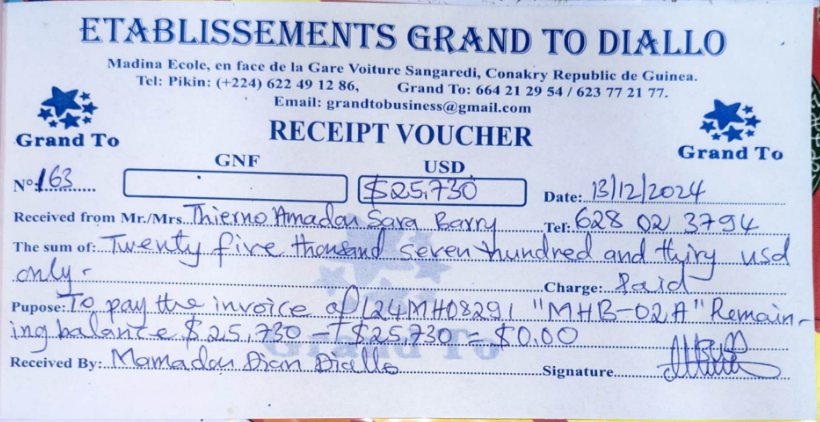 ETABLISSEMENTS GRAND TO DIALLO
Madina Ecole, en face de la Gare Voiture Sangaredi, Conakry Republic de Guinea.
Tel: Pikin: (+224) 622 49 12 86, Grand To: 664 21 29 54 / 623 77 21 77.
Email: grandtobusiness@gmail.com
Grand To
RECEIPT VOUCHER
Grand To
GNF USD
N°: 163 $25,730 Date: 13/12/2024
Received from Mr./Mrs. Thierno Amadou Sara Barry Tel: 628 02 3794
The sum of: Twenty five thousand seven hundred and thiry usd
only - Charge: Paid
Pupose: To pay the invoice of L24MH08291 "MHB-02A" Remain-
ing balance $25,730 - $25,730 = $0.00
Grand To
Received By: Mamadou Dian Diallo Signature